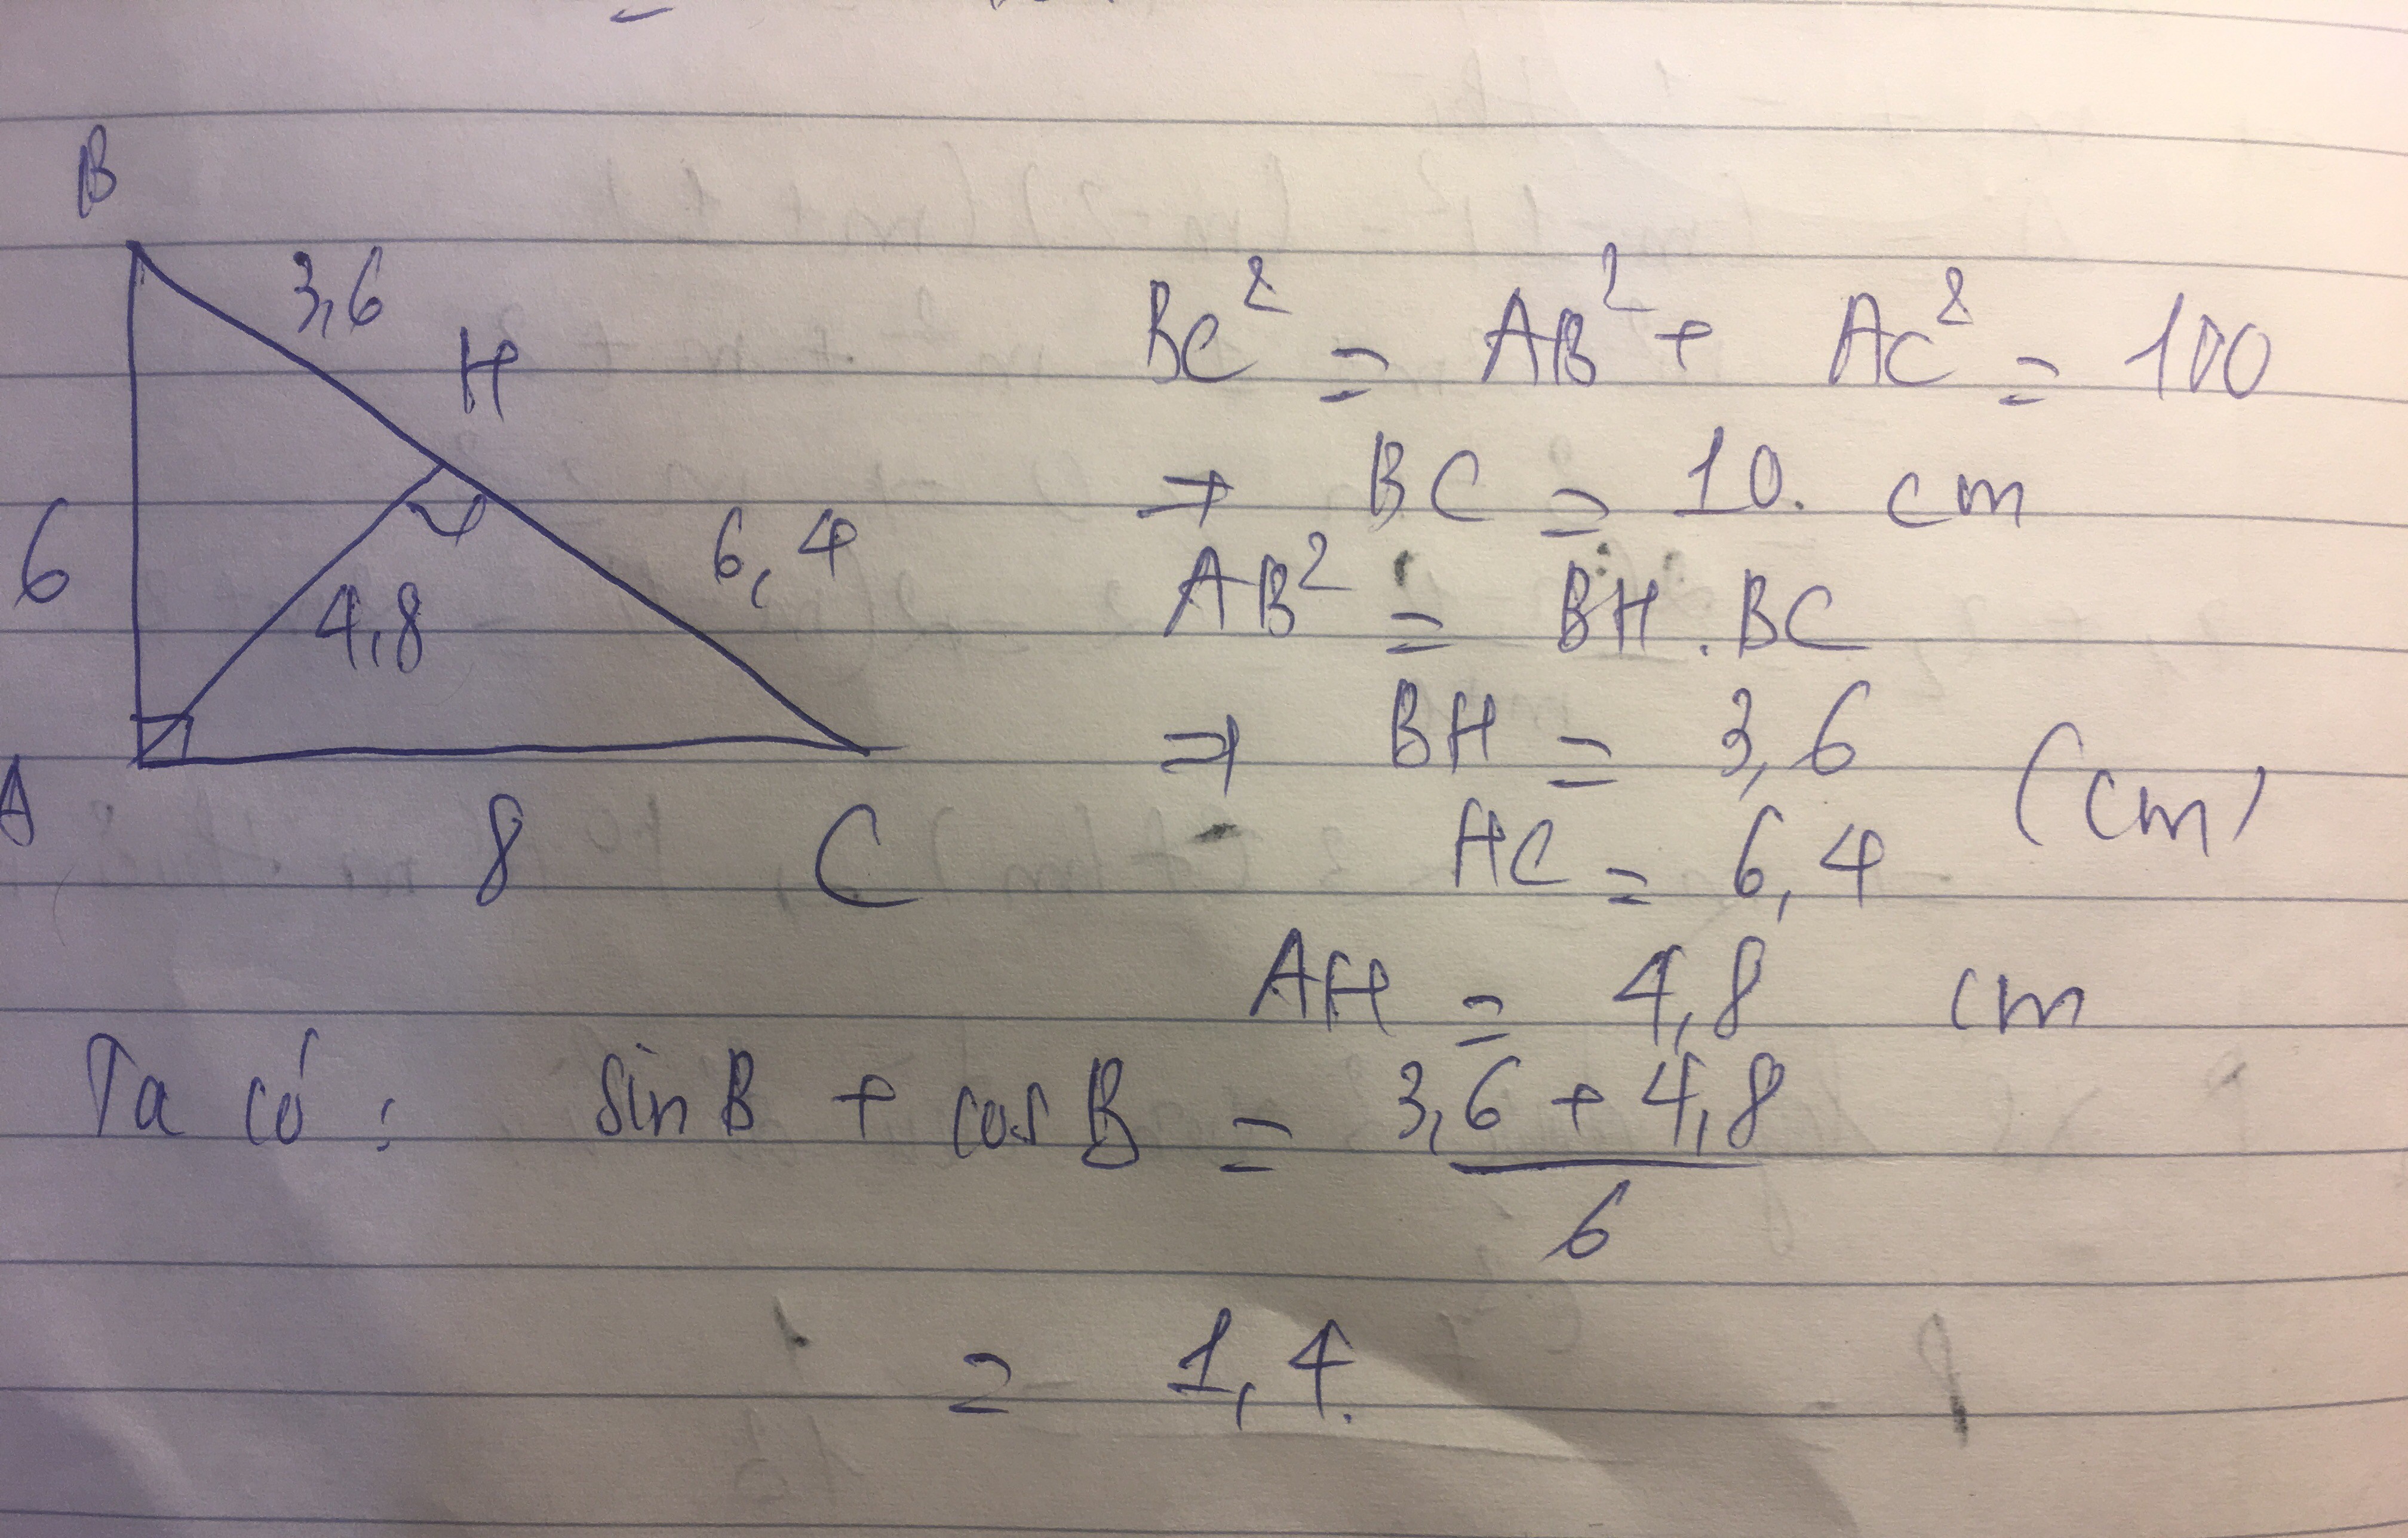 B
3,6
H
6
4,8
6,4
A
8
C
BC² = AB² + AC² = 100
⇒ BC = 10. cm
AB² = BH . BC
⇒ BH = 3,6
HC = 6,4 (cm)
AH = 4,8 cm
Ta có: sin B + cos B = 3,6 + 4,8
6
= 1,4.